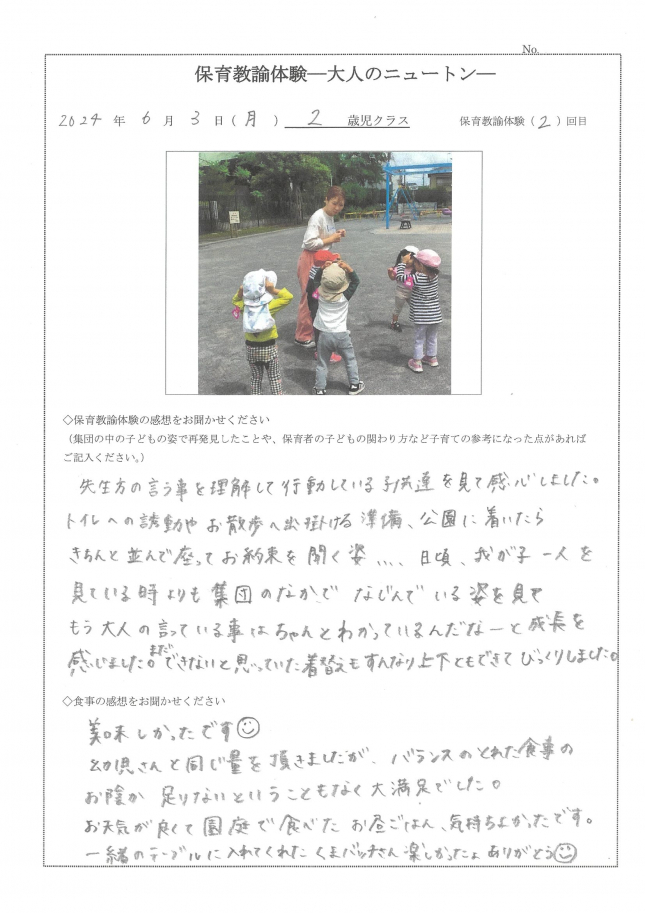 No.
保育教諭体験―大人のニュートン―
2024 年 6 月 3 日(月) 2 歳児クラス 保育教諭体験(2)回目
◇保育教諭体験の感想をお聞かせください
(集団の中の子どもの姿で再発見したことや、保育者の子どもの関わり方など子育ての参考になった点があれば
ご記入ください。)
先生方の言う事を理解して行動している子供達を見て感心しました。
トイレへの誘動やお散歩へ出掛ける準備、公園に着いたら
きちんと並んで座ってお約束を聞く姿、、、、日頃、我が子一人を
見ている時よりも集団のなかでなじんでいる姿を見て
もう大人の言っている事はちゃんとわかっているんだなーと成長を
感じました。まだできないと思っていた着替えもすんなり上下ともできてびっくりしました。
◇食事の感想をお聞かせください
美味しかったです☺
幼児さんと同じ量を頂きましたが、バランスのとれた食事の
お陰か足りないということもなく大満足でした。
お天気が良くて園庭で食べたお昼ごはん、気持ちよかったです。
一緒のテーブルに入れてくれたくまバッチさん楽しかったよありがとう☺